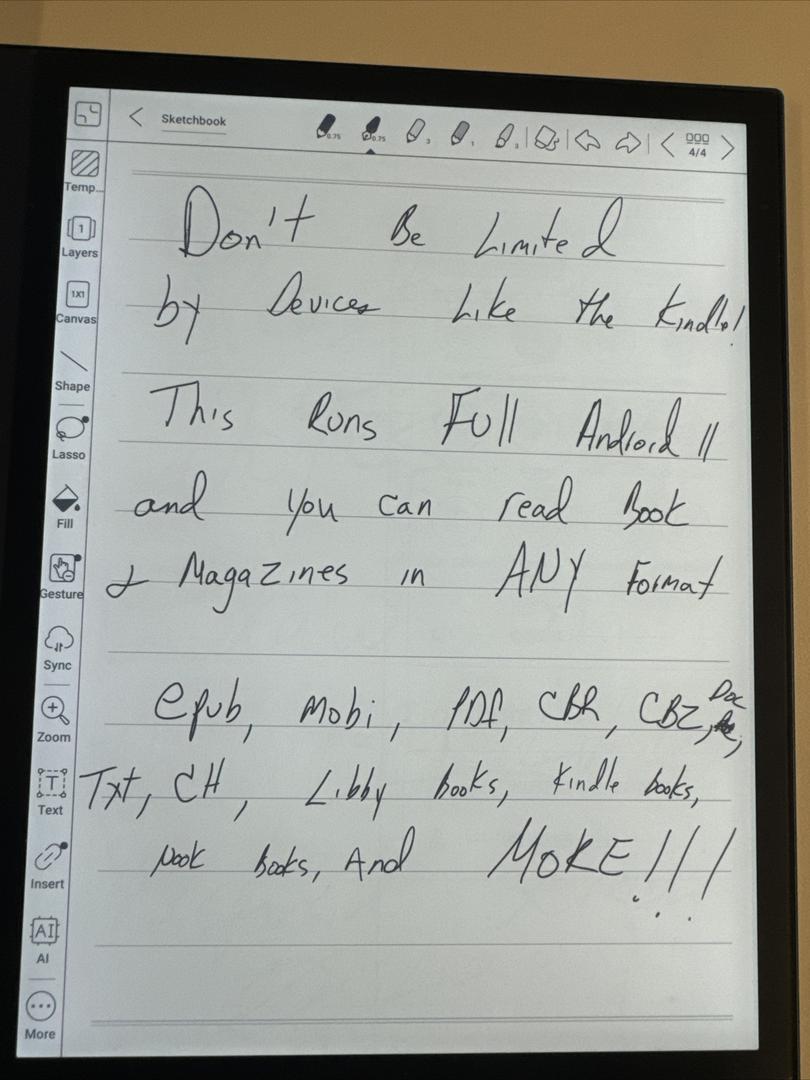 Sketchbook
0.75
0.75
3
1
3
4/4
Temp...
1
Layers
1X1
Canvas
Shape
Lasso
Fill
Gesture
Sync
Zoom
T
Text
Insert
AI
AI
More
Don't Be Limited
by Devices Like the Kindle!
This Runs Full Android 11
and you can read Book
& Magazines in ANY Format
epub, Mobi, PDF, CBR, CBZ, Doc,
Txt, CH, Libby books, Kindle books,
Nook Books, And MORE!!!